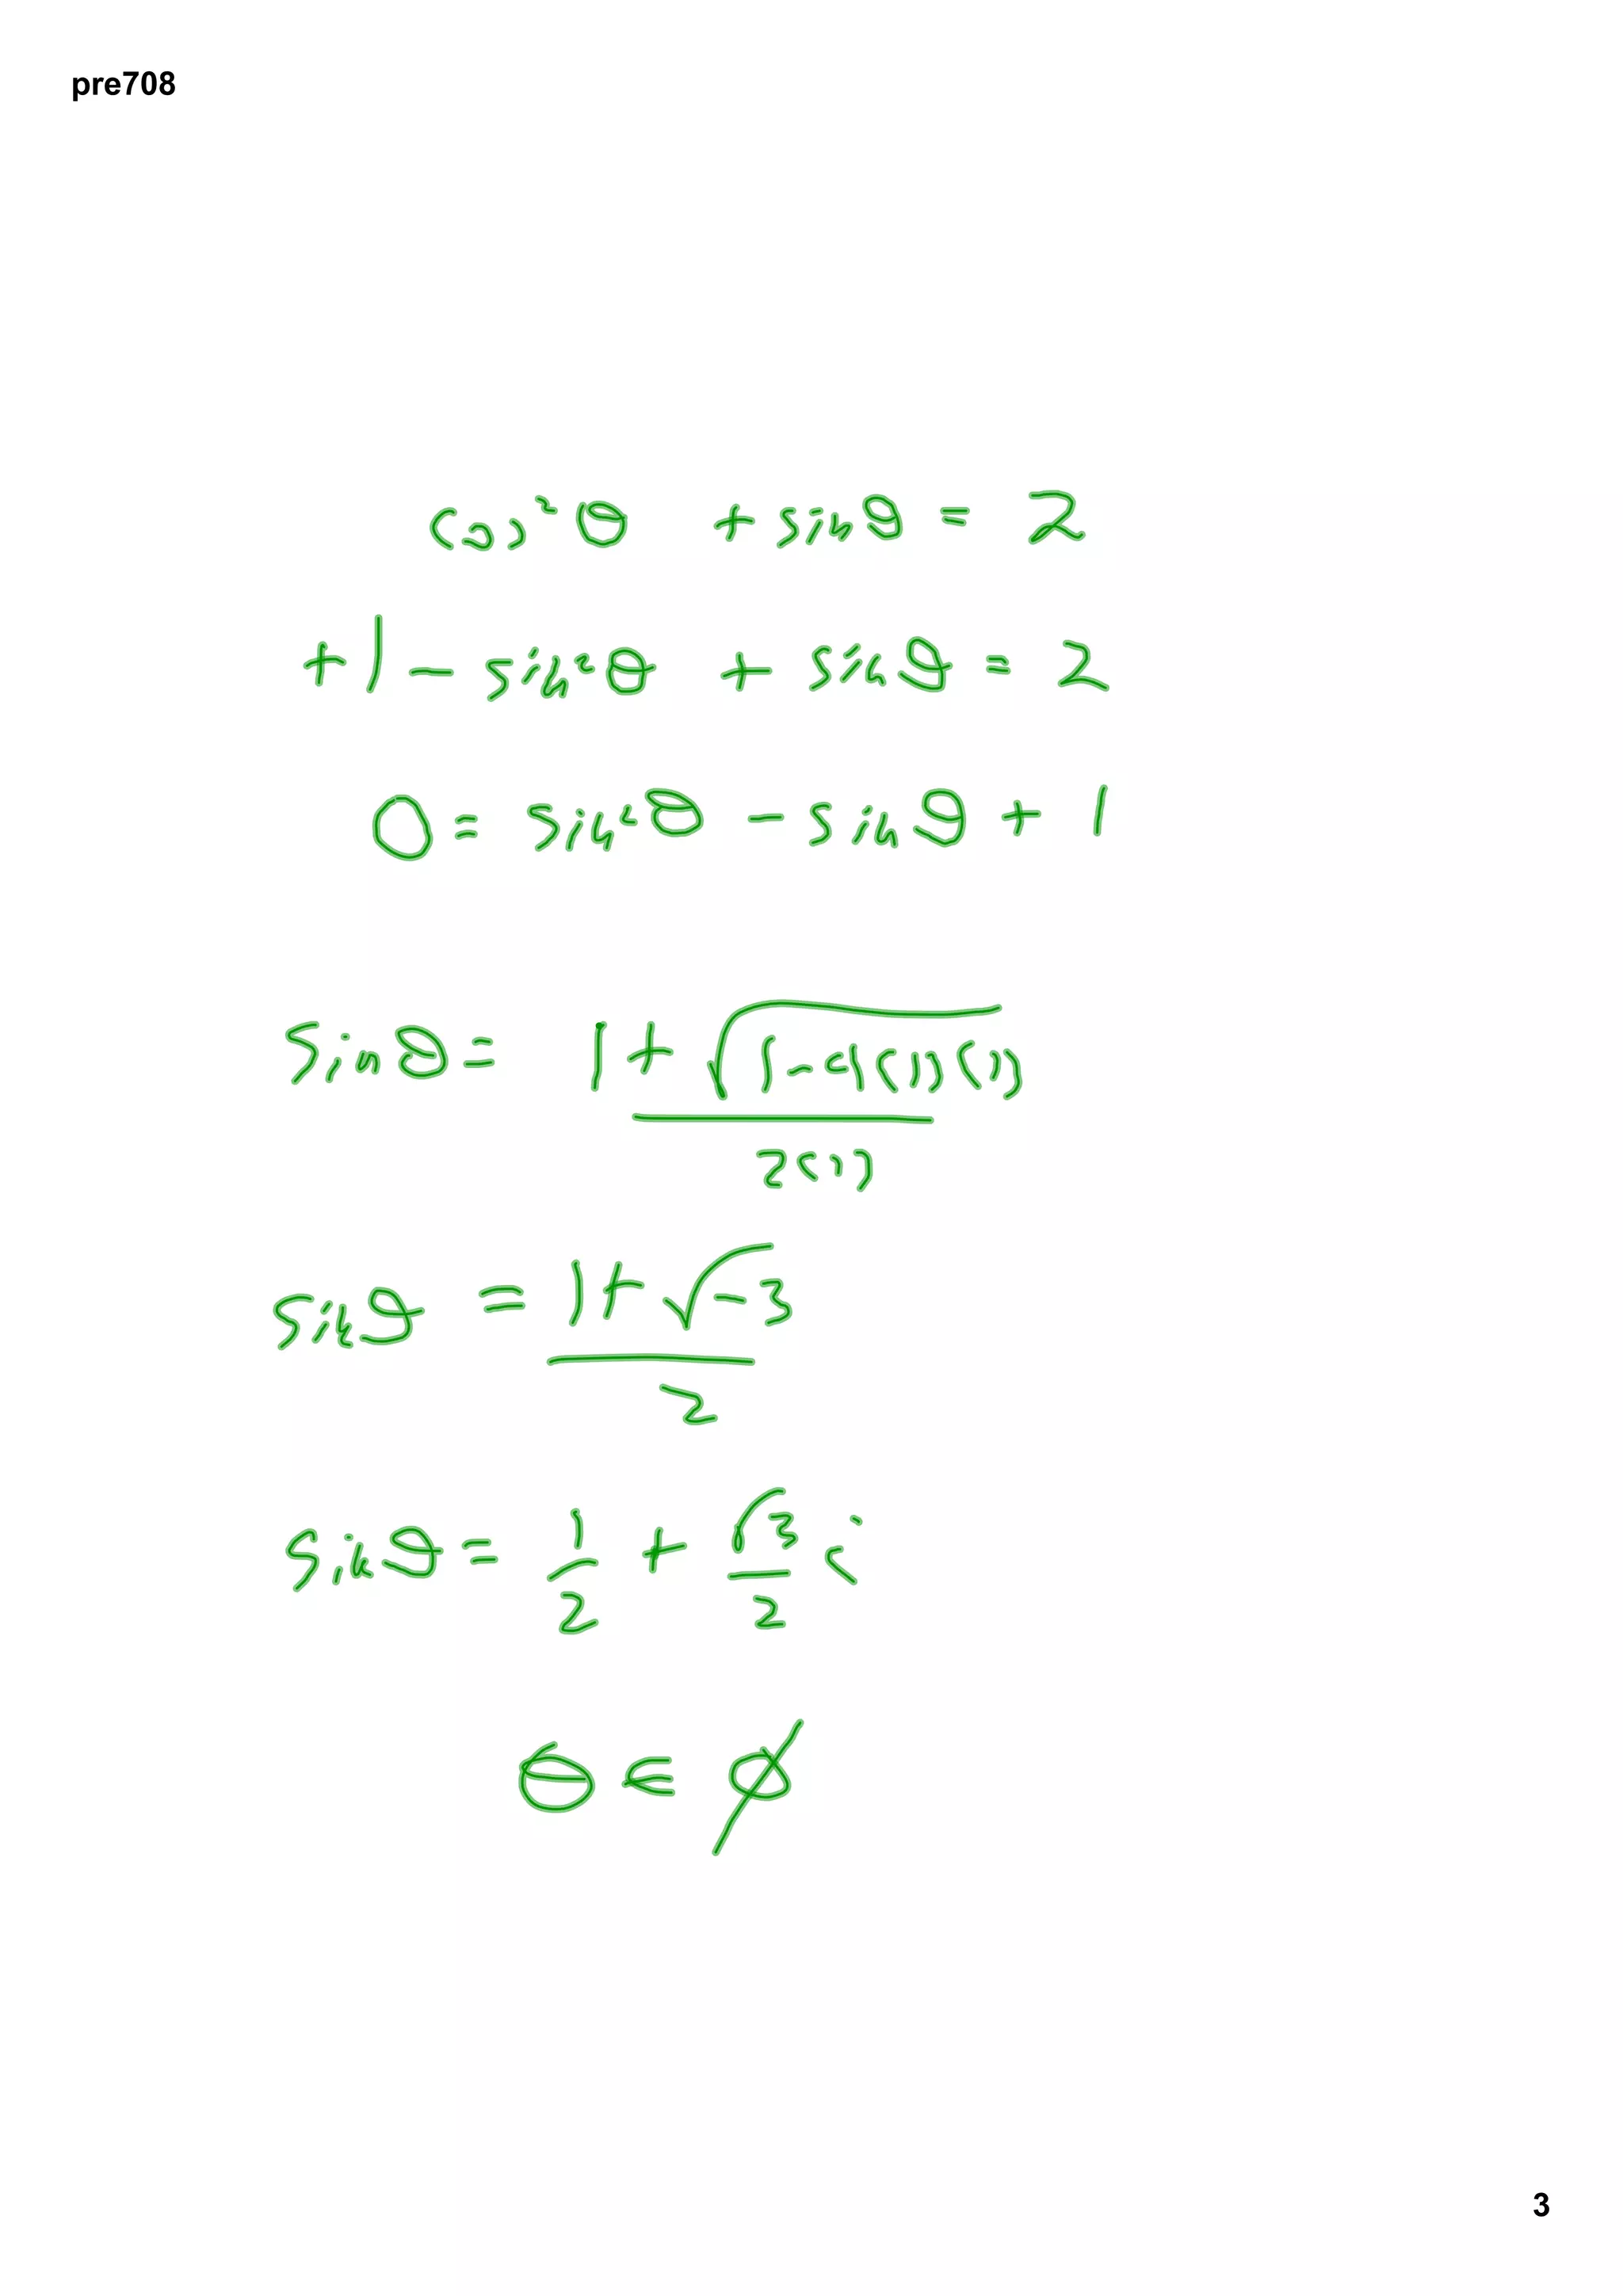 pre708
cos²θ + sinθ = 2
+1 - sin²θ + sinθ = 2
0 = sin²θ - sinθ + 1
sinθ = 1 + √1 - 4(1)(1)
2(1)
sinθ = 1 + √-3
2
sinθ = 1/2 + √3/2 i
θ ∈ ∅
3